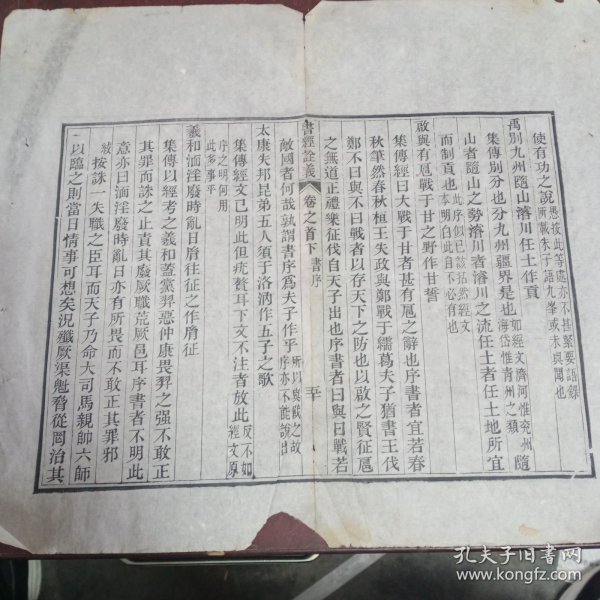 使有功之說愚按此等處亦不甚緊要語錄所載朱子語九峯或未與聞也
禹別九州隨山濬川任土作貢
集傳別分也分九州疆界是也如經文濟河惟兗州海岱惟青州之類隨
山者隨山之勢濬川者濬川之流任土者任土地所宜
而制貢也此序似已該括然經文本明白此自不必有也
啟與有扈戰于甘之野作甘誓
集傳經曰大戰于甘者甚有扈之辭也序書者宜若春
秋筆然春秋桓王失政與鄭戰于繻葛夫子猶書王伐
鄭不曰與不曰戰者以存天下之防也以啟之賢征扈
之無道正禮樂征伐自天子出也序書者曰與曰戰若
書經詮義 卷之首下 書序
敵國者何哉孰謂書序爲夫子作乎所以與戰之故序亦不能說出
太康失邦昆弟五人須于洛汭作五子之歌
集傳經文已明此但疣贅耳下文不注者放此反不如經文原
序之明何用此多事乎
羲和湎淫廢時亂日胤往征之作胤征
集傳以經考之羲和蓋黨羿惡仲康畏羿之强不敢正
其罪而誅之止責其廢厥職荒厥邑耳序書者不明此
意亦曰湎淫廢時亂日亦有所畏而不敢正其罪邪
按誅一失職之臣耳而天子乃命大司馬親帥六師
以臨之則當日情事可想矣況殲厥渠魁脅從罔治其
孔夫子旧书网
www.kongfz.com